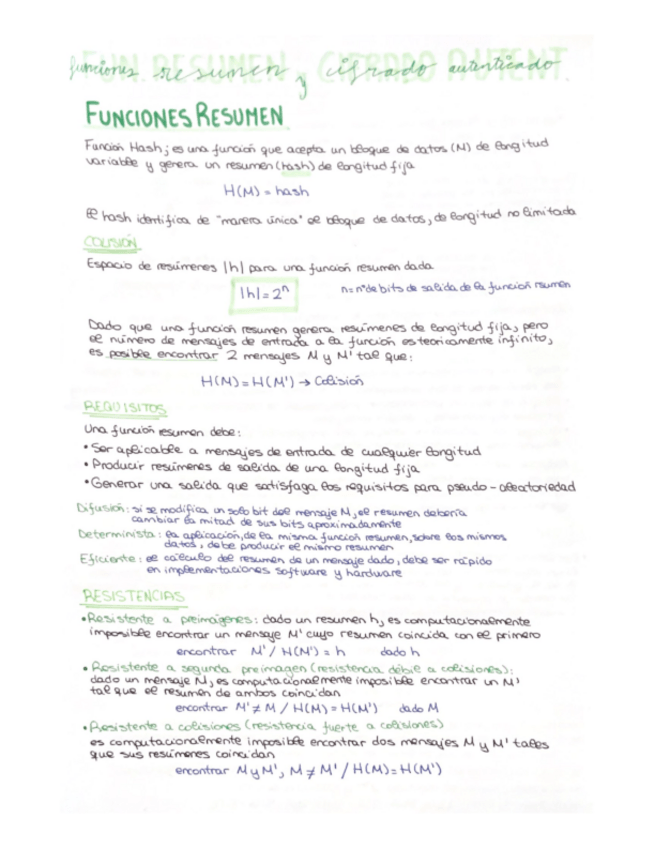 FUN. RESUMEN y CIFRADO AUTENT.
funciones resumen y cifrado autenticado
FUNCIONES RESUMEN
Función Hash; es una función que acepta un bloque de datos (M) de longitud
variable y genera un resumen (hash) de longitud fija
H(M) = hash
El hash identifica de "manera única" el bloque de datos, de longitud no limitada
COLISIÓN
Espacio de resúmenes |h| para una función resumen dada
|h| = 2ⁿ n = nº de bits de salida de la función resumen
Dado que una función resumen genera resúmenes de longitud fija, pero
el número de mensajes de entrada a la función es teoricamente infinito,
es posible encontrar 2 mensajes M y M' tal que:
H(M) = H(M') → Colisión
REQUISITOS
Una función resumen debe:
• Ser aplicable a mensajes de entrada de cualquier longitud
• Producir resúmenes de salida de una longitud fija
• Generar una salida que satisfaga los requisitos para pseudo-aleatoriedad
Difusión: si se modifica un solo bit del mensaje M, el resumen debería
cambiar la mitad de sus bits aproximadamente
Determinista: la aplicación, de la misma función resumen, sobre los mismos
datos, debe producir el mismo resumen
Eficiente: el cálculo del resumen de un mensaje dado, debe ser rápido
en implementaciones software y hardware
RESISTENCIAS
• Resistente a preimágenes: dado un resumen h, es computacionalmente
imposible encontrar un mensaje M' cuyo resumen coincida con el primero
encontrar M' / H(M') = h dado h
• Resistente a segunda preimagen (resistencia débil a colisiones):
dado un mensaje M, es computacionalmente imposible encontrar un M'
tal que el resumen de ambos coincidan
encontrar M' ≠ M / H(M) = H(M') dado M
• Resistente a colisiones (resistencia fuerte a colisiones)
es computacionalmente imposible encontrar dos mensajes M y M' tales
que sus resúmenes coincidan
encontrar M y M', M ≠ M' / H(M) = H(M')